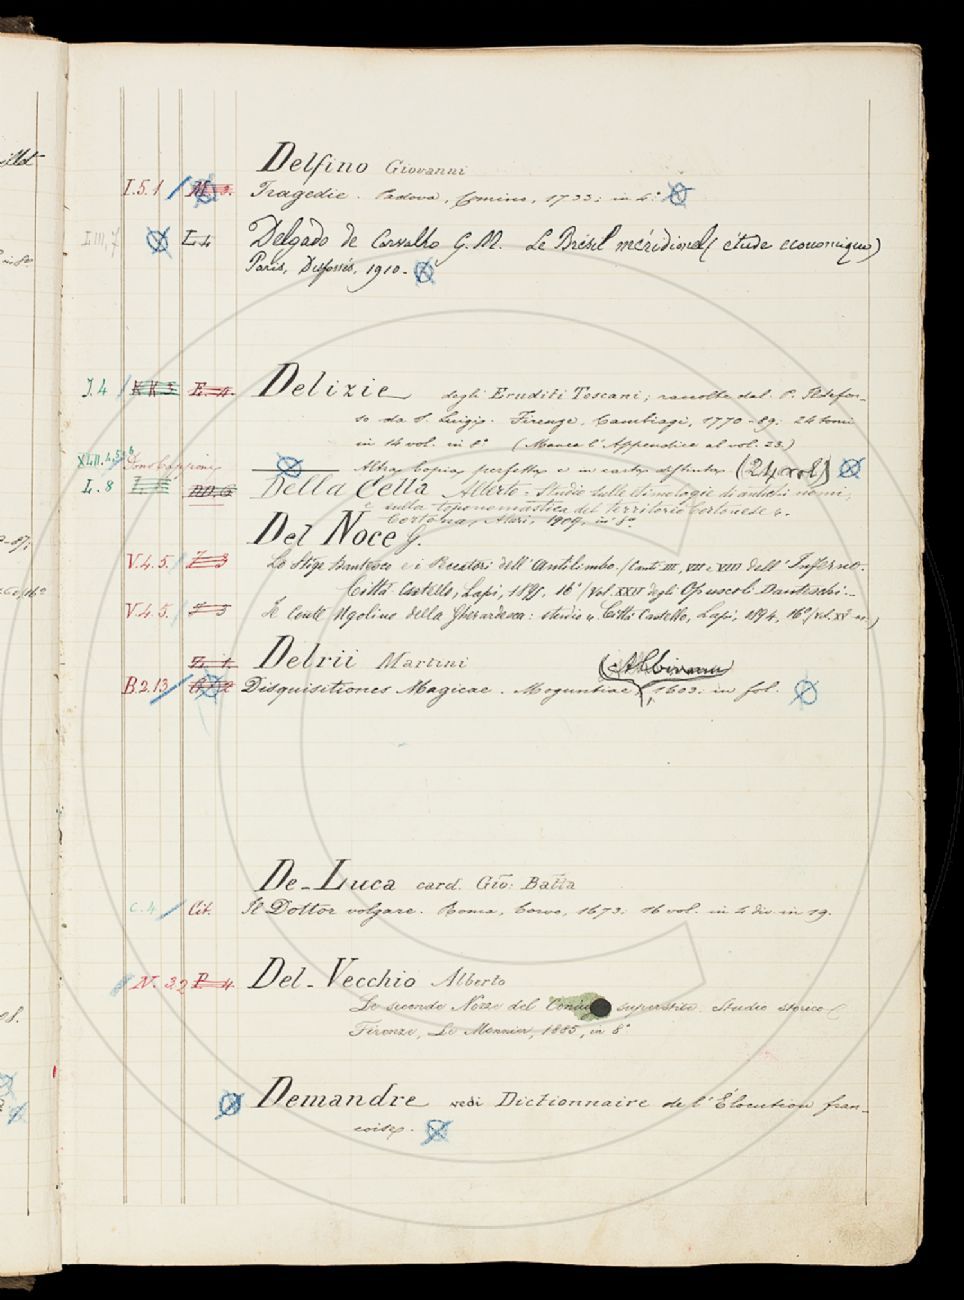 Delfino Giovanni
I.5.1 M. 3. Tragedie. Padova, Comino, 1733; in 4.°
I.III,7 E 4 Delgado de Carvalho G. M. Le Brésil méridional (étude economique)
Paris, Desfossés, 1910.
J.4 K K 3 E. 4. Delizie degli Eruditi Toscani; raccolte dal P. Ildefon-
so da S. Luigi. Firenze, Cambiagi, 1770-89; 24 tomi
in 14 vol. in 8.° (Manca l'Appendice al vol. 23.)
Altra copia, perfetta e in carta distinta (24 vol.)
L. 8 Della Cella Alberto - Studio sulle etimologie di antichi nomi,
e sulla toponomastica del territorio Cortonese &.
Cortona, Alari, 1909, in 8°
Del Noce G.
V.4.5. Z 3 Lo Stige Dantesco e i Peccatori dell'Antilimbo. (Canti III, VII e VIII dell'Inferno.
Città Castello, Lapi, 1895. 16° (Vol. XXIV degli Opuscoli Danteschi.
V.4.5. Il Conte Ugolino della Gherardesca: studio &. Città Castello, Lapi, 1894, 16°
Z. 1. Delrii Martini (Albirami)
B.2.13 Disquisitiones Magicae. Moguntiae, 1603; in fol.
De-Luca card. Gio: Batta
C. 4 Cit. Il Dottor volgare. Roma, Corvo, 1673; 16 vol. in 4 div. in 19.
N. 32 P. 4. Del-Vecchio Alberto
Le seconde Nozze del superstite. Studio storico
Firenze, Le Monnier, 1885, in 8°
Demandre vedi Dictionnaire de l'Élocution fran-
coise.